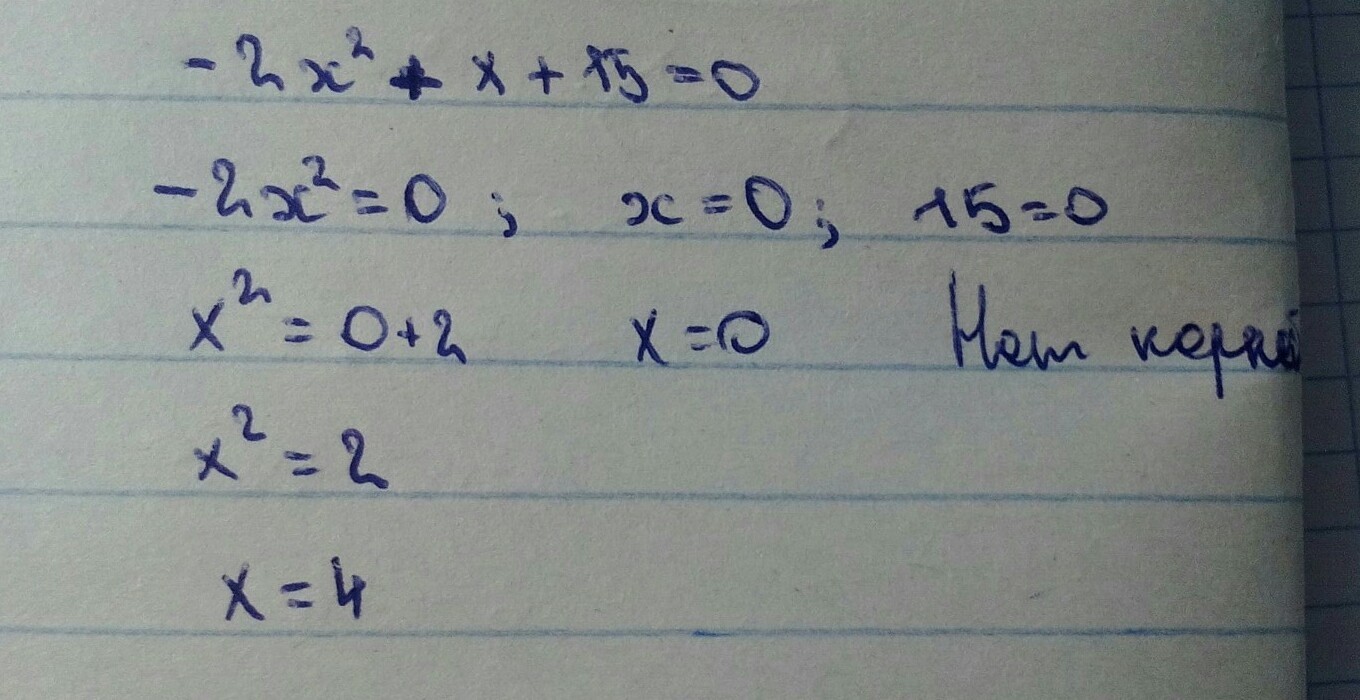 -2x² + x + 15 = 0
-2x² = 0 ; x = 0 ; 15 = 0
x² = 0 + 2 x = 0 Нет корней
x² = 2
x = 4